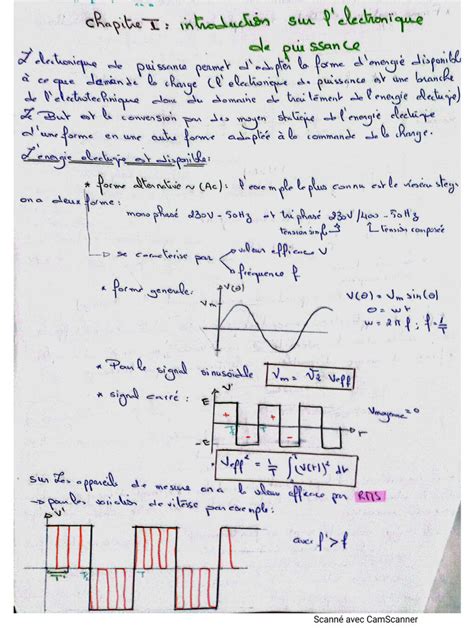 chapitre I : introduction sur l'electronique
de puissance
L'électronique de puissance permet d'adapter la forme d'énergie disponible
à ce que demande la charge (l'electronique de puissance est une branche
de l'electrotechnique dans du domaine de traitement de l'energie electrique)
Le But est la conversion par des moyen statique de l'énergie électrique
d'une forme en une autre forme adaptée à la commande de la charge.
L'énergie electrique est disponible:
* forme alternative ~ (AC): l'exemple le plus connu est le réseau
on a deux forme:
monophasé 230V - 50Hz et triphasé 230V/400 - 50Hz
tension simple tension composée
se caractérise par valeur efficace V
fréquence f
* forme generale: V(θ)
Vm
V(θ) = Vm sin(θ)
θ = wt
w = 2πf ; f = 1/T
* Pour le signal sinusoidale Vm = √2 Veff
* signal carré: V
E
-E
Vmoyenne = 0
Veff² = 1/T ∫(V(t))² dt
sur les appareils de mesure on a la valeur efficace par RMS
→ pour les variation de vitesse par exemple:
V
avec f' > f
Scanné avec CamScanner